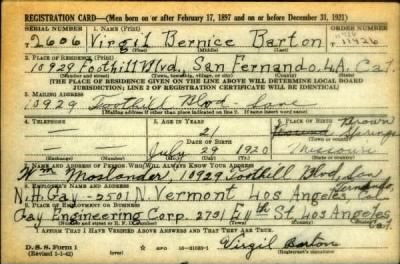 REGISTRATION CARD—(Men born on or after February 17, 1897 and on or before December 31, 1921)
SERIAL NUMBER 1. NAME (Print) ORDER NUMBER
T2606 Virgil Bernice Barton 11426
(First) (Middle) (Last)
2. PLACE OF RESIDENCE (Print)
10929 Foothill Blvd, San Fernando, L.A. Cal.
(Number and street) (Town, township, village, or city) (County) (State)
[THE PLACE OF RESIDENCE GIVEN ON THE LINE ABOVE WILL DETERMINE LOCAL BOARD
JURISDICTION; LINE 2 OF REGISTRATION CERTIFICATE WILL BE IDENTICAL]
3. MAILING ADDRESS
10929 Foothill Blvd - San
[Mailing address if other than place indicated on line 2. If same insert word same]
4. TELEPHONE 5. AGE IN YEARS 6. PLACE OF BIRTH
— 21 Brown
Springs
DATE OF BIRTH
— July 29 1920 Missouri
7. NAME AND ADDRESS OF PERSON WHO WILL ALWAYS KNOW YOUR ADDRESS
Wm Moslander 10929 Foothill Blvd, San
Fernando, Cal
8. EMPLOYER'S NAME AND ADDRESS
N.H. Gay - 5501 N. Vermont Los Angeles,
9. PLACE OF EMPLOYMENT OR BUSINESS
Gay Engineering Corp. 2731 E 11th St, Los Angeles, Cal.
I AFFIRM THAT I HAVE VERIFIED ABOVE ANSWERS AND THAT THEY ARE TRUE.
D. S. S. Form 1
(Revised 1-1-42)
Virgil Barton